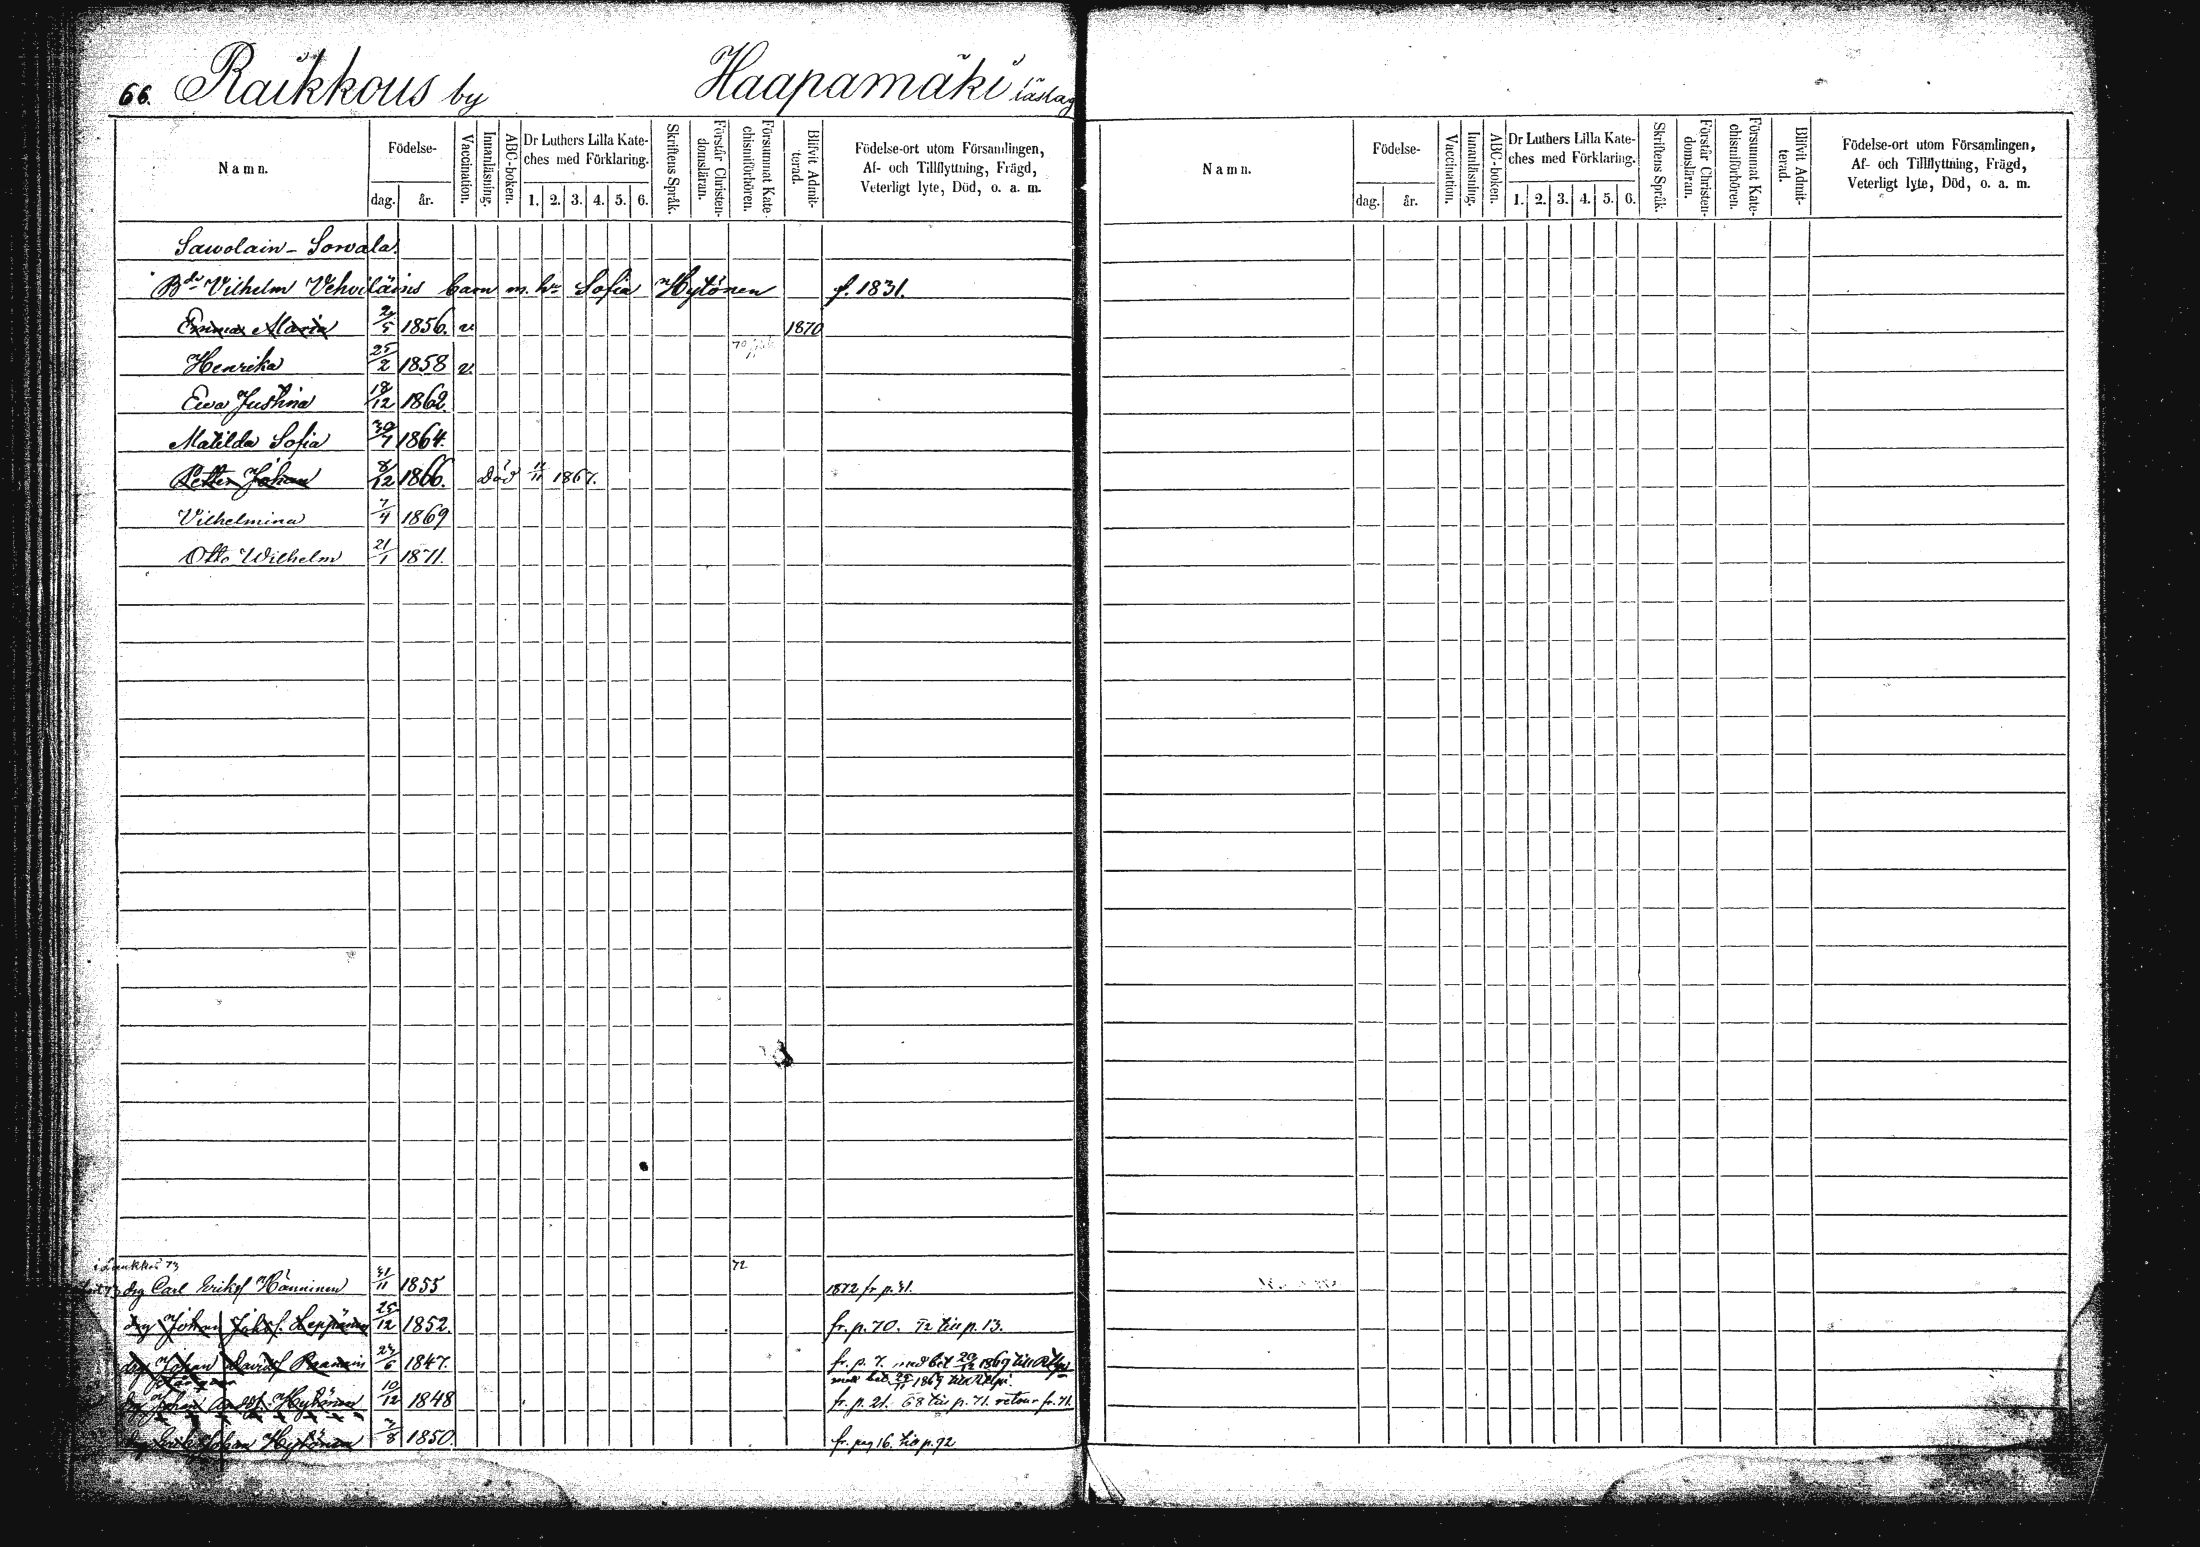 66. Räikkous by Haapamäki läslag
Namn.
Födelse-
dag.
år.
Vaccination.
Innanläsning.
ABC-boken.
Dr Luthers Lilla Kate-
ches med Förklaring.
1. 2. 3. 4. 5. 6.
Skriftens Språk.
Förstår Christen-
domsläran.
Försummat Kate-
chismiförhören.
Blifvit Admit-
terad.
Födelse-ort utom Församlingen,
Af- och Tillflyttning, Frägd,
Veterligt lyte, Död, o. a. m.
Sawolain - Sorvala.
Bde Vilhelm Vehviläins barn m. h. Sofia Hytönen f. 1831.
Emma Maria 2/5 1856. v 1870
Henrika 25/2 1858 v. 70
Ewa Justina 18/12 1862
Matilda Sofia 30/7 1864.
Petter Johan 8/12 1866. Död 11/11 1867.
Vilhelmina 7/4 1869
Otto Wilhelm 21/1 1871.
i Laukkas 73 72
drg Carl Eriksf Hänninen 21/11 1855 1872 fr p. 31.
drg Johan Johsf. Leppänen 25/12 1852. fr. p. 70. 72 till p. 13.
drg Johan Davidsf Raanain 27/6 1847. fr. p. 7. med bet 20/12 1869 till
med bet 25/11 1869 till
drg Johan Andsf. Hytönen 10/12 1848 fr. p. 21. 68 till p. 71. retour fr. 71.
drg Erik Johan Hytönen 7/8 1850. fr. pag 16. till p. 92
Namn.
Födelse-
dag.
år.
Vaccination.
Innanläsning.
ABC-boken.
Dr Luthers Lilla Kate-
ches med Förklaring.
1. 2. 3. 4. 5. 6.
Skriftens Språk.
Förstår Christen-
domsläran.
Försummat Kate-
chismiförhören.
Blifvit Admit-
terad.
Födelse-ort utom Församlingen,
Af- och Tillflyttning, Frägd,
Veterligt lyte, Död, o. a. m.